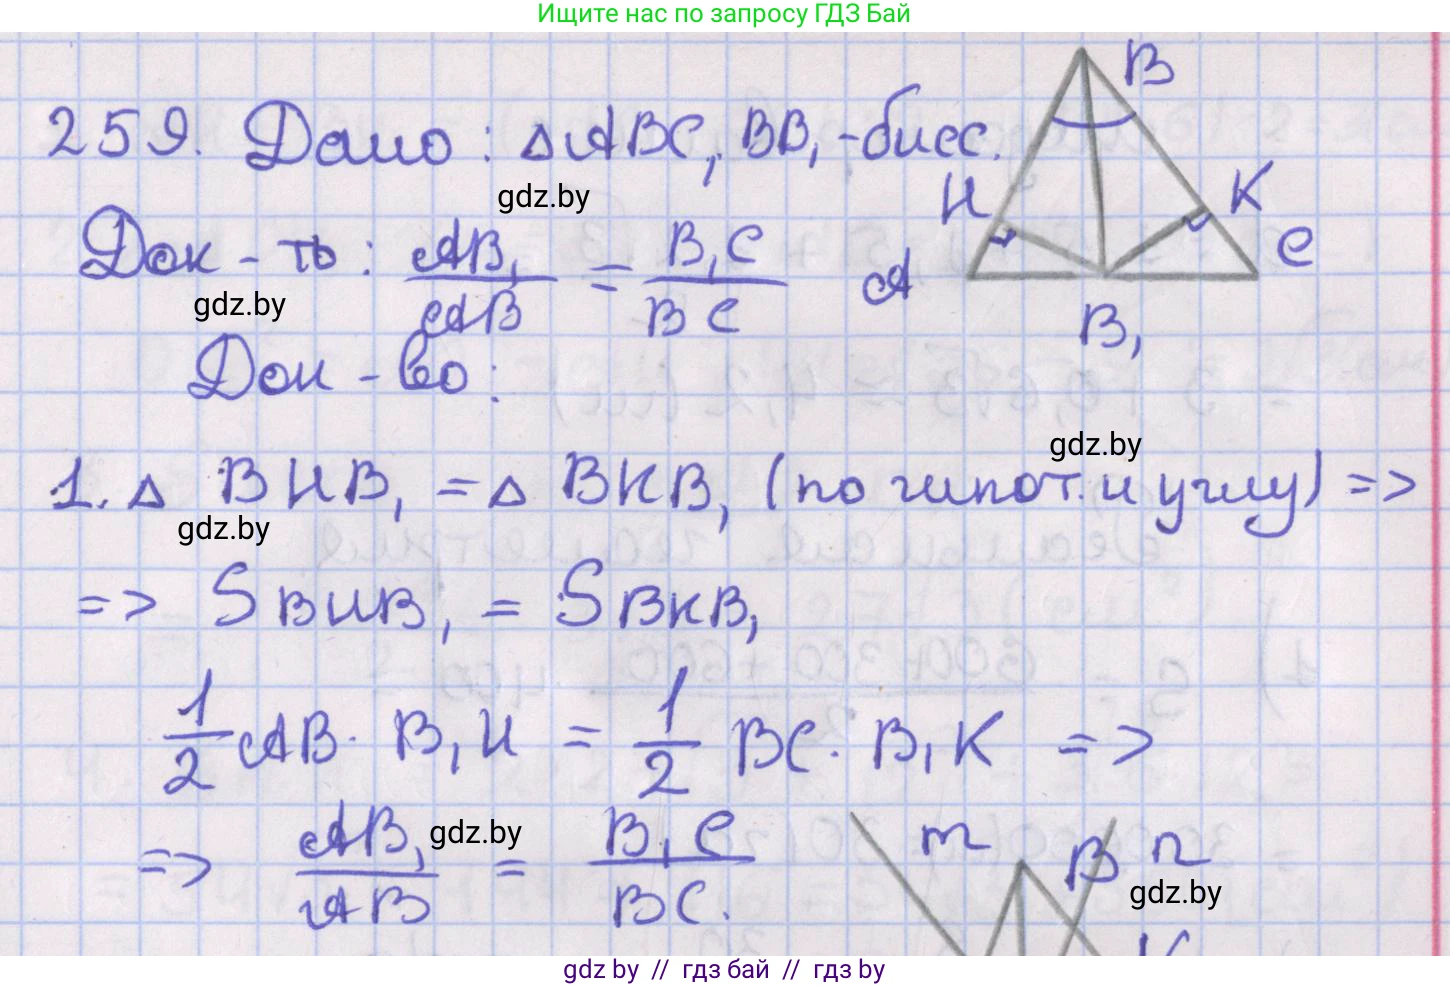 Ищите нас по запросу ГДЗ Бай
259. Дано: △ABC, BB₁-бисс.
gdz.by
Док-ть: AB₁/AB = B₁C/BC
gdz.by
B
H
K
A
C
B₁
Док-во:
gdz.by
1. △ BHB₁ = △ BKB₁ (по гипот. и углу) =>
gdz.by
=> S BHB₁ = S BKB₁
1/2 AB · B₁H = 1/2 BC · B₁K =>
=> AB₁/AB = B₁C/BC.
gdz.by
m
B
n
gdz.by
K
gdz by // гдз бай // гдз by